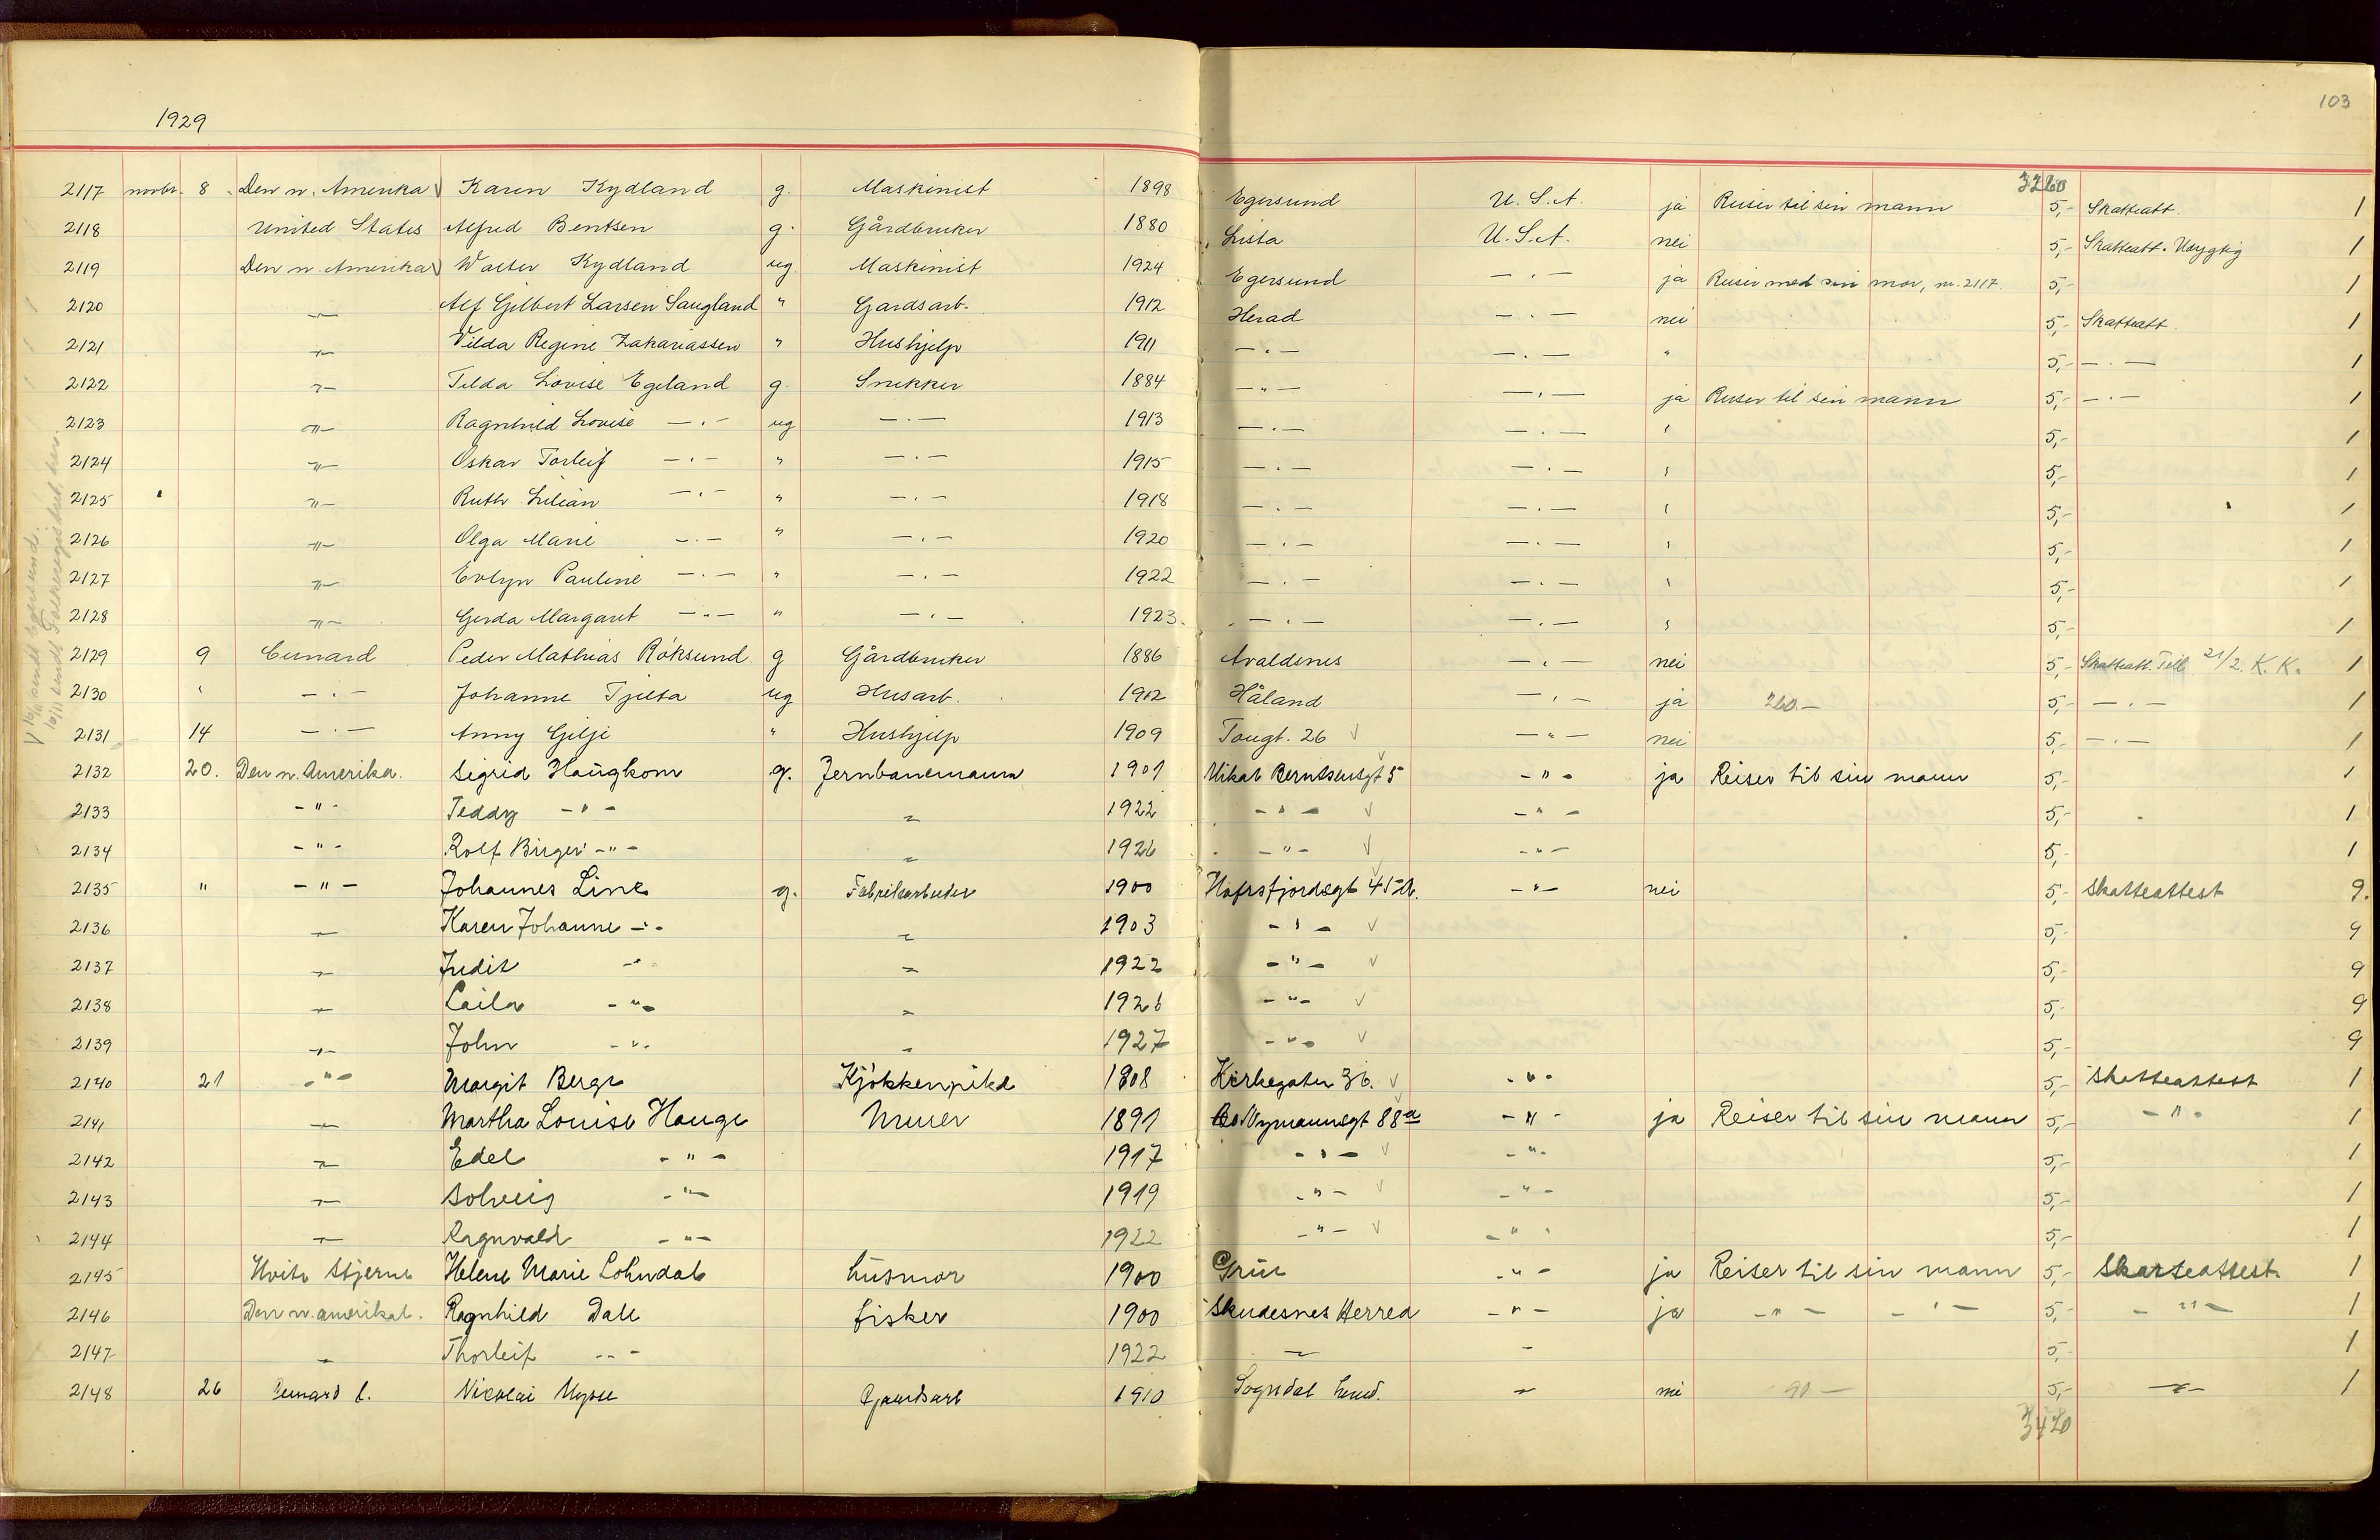 1929
103
3260
2117 novbr. 8 Den n. Amerika Karen Kydland g. Maskinist 1898 Egersund U.S.A. ja Reiser til sin mann 5,- Skatteatt. 1
2118 United States Alfred Bentsen g. Gårdbruker 1880 Lista U.S.A. nei 5,- Skatteatt. 1
2119 Den n. Amerika Walter Kydland ug. Maskinist 1924 Egersund -"- ja Reiser med sin mor, nr. 2117. 5,- 1
2120 -"- Alf Gilbert Larsen Saugland " Gardsarb. 1912 Herad -"- nei 5,- Skatteatt. 1
2121 -"- Vilda Regine Zakariassen " Hushjelp 1911 -"- -"- " 5,- -"- 1
2122 -"- Tilda Lovise Egeland g. Snekker 1884 -"- -"- ja Reiser til sin mann 5,- -"- 1
2123 -"- Ragnhild Lovise -"- ug -"- 1913 -"- -"- " 5,- 1
2124 -"- Oskar Torleif -"- " -"- 1915 -"- -"- " 5,- 1
2125 -"- Ruth Lilian -"- " -"- 1918 -"- -"- " 5,- 1
2126 -"- Olga Marie -"- " -"- 1920 -"- -"- " 5,- 1
2127 -"- Evlyn Pauline -"- " -"- 1922 -"- -"- " 5,- 1
2128 -"- Gerda Margaret -"- " -"- 1923. -"- -"- " 5,- 1
2129 9 Cunard Peder Mathias Röksund g Gårdbruker 1886 Avaldsnes -"- nei 5,- Skatteatt. Till. 21/2. K.K. 1
2130 " -"- Johanne Tjelta ug Husarb. 1912 Håland -"- ja 260.- 5,- -"- 1
2131 14 -"- Anny Gilje " Hushjelp 1909 Tougt. 26 -"- nei 5,- -"- 1
2132 20. Den n. Amerika. Sigrid Haugkom g. Jernbanemann 1901 Mikal Berntsensgt 5 -"- ja Reiser til sin mann 5,- 1
2133 -"- Teddy -"- -"- 1922 -"- -"- 5,- 1
2134 -"- Rolf Birger -"- -"- 1926 -"- -"- 5,- 1
2135 " -"- Johannes Line g. Fabrikarbeider 1900 Hafrsfjordsgt 45 -"- nei 5,- Skatteattest 9.
2136 -"- Karen Johanne -"- -"- 1903 -"- 5,- 9
2137 -"- Judit -"- -"- 1922 -"- 5,- 9
2138 -"- Laila -"- -"- 1926 -"- 5,- 9
2139 -"- John -"- -"- 1927 -"- 5,- 9
2140 21 -"- Margit Berge Kjökkenpike 1908 Kirkegaten 36. -"- 5,- Skatteattest 1
2141 -"- Martha Louise Hauge Murer 1891 Nymannsgt 88a -"- ja Reiser til sin mann 5,- -"- 1
2142 -"- Edel -"- 1917 -"- -"- 5,- 1
2143 -"- Solveig -"- 1919 -"- -"- 5,- 1
2144 -"- Ragnvald -"- 1922 -"- -"- 5,- 1
2145 Hvite Stjerne Helene Marie Lohndal husmor 1900 -"- ja Reiser til sin mann 5,- Skatteattest 1
2146 Den n. amerikal. Ragnhild Dale fisker 1900 Skudesnes Herred -"- ja -"- -"- 5,- -"- 1
2147 -"- Thorleif -"- 1922 -"- - 5,- 1
2148 26 Cunard l. Nicolai Mysse Gaardsarb 1910 Sogndal -"- nei 90- 5,- -"- 1
3420
V 16/11 sendt Egersund.
16/11 sendt Folkeregisteret, her.